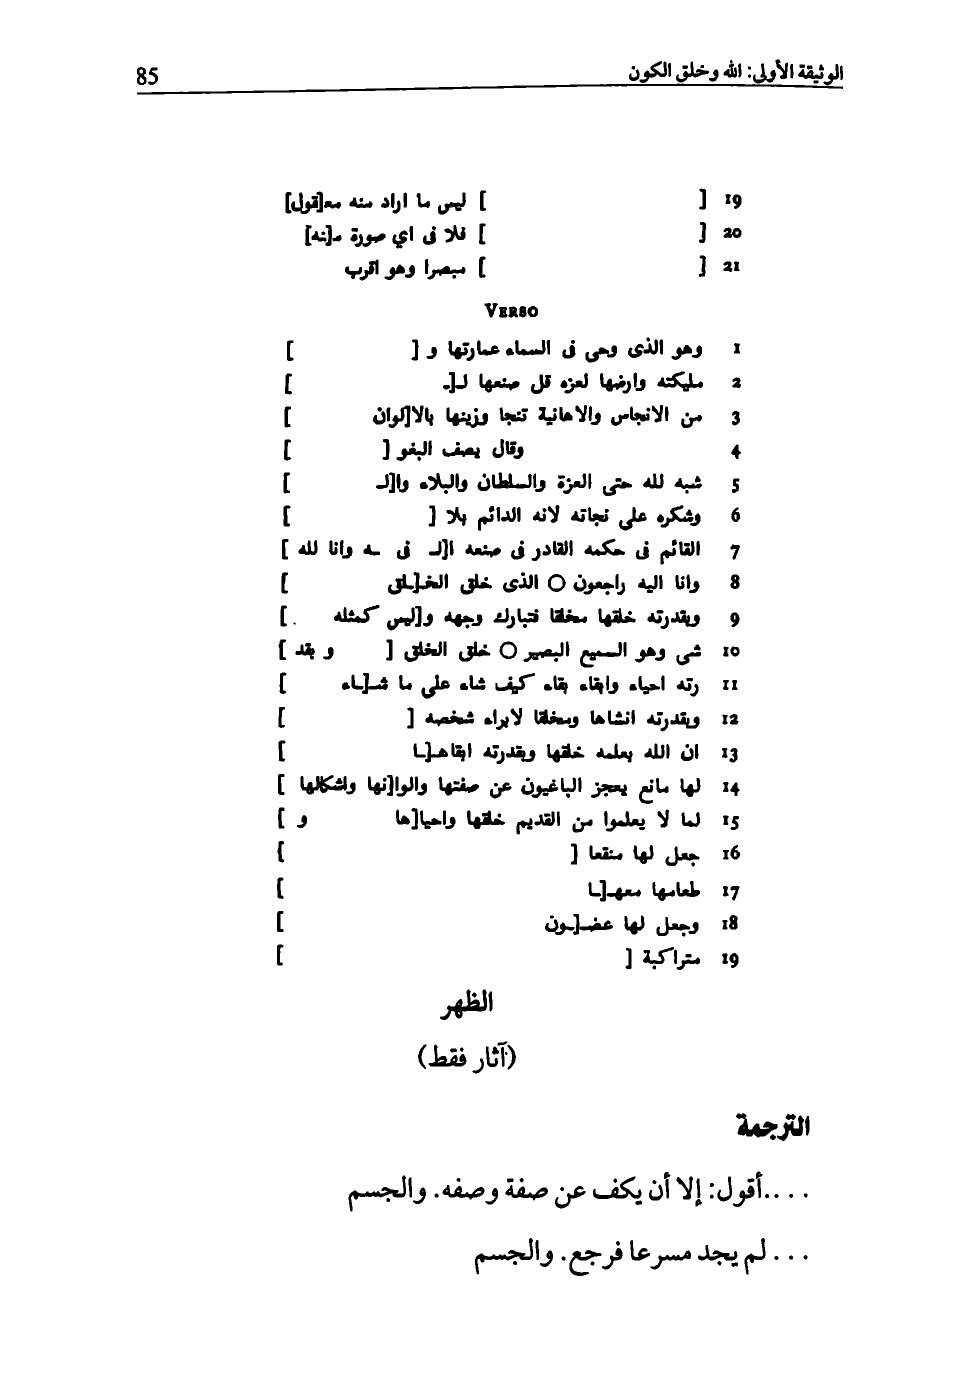 الوثيقة الأولى: الله وخلق الكون 85
19 [ ] ليس ما اراد منه معـ[قول]
20 [ ] فلا فى اي صورة مـ[نه]
21 [ ] مبصرا وهو اقرب
VERSO
1 وهو الذى وحى فى السماء عمارتها و [ ]
2 مليكته وارضها لعزه قل صنعها لـ[ـ ]
3 من الانجاس والاهانية تنجا وزينها بالا[لوان ]
4 وقال يصف البغو [ ]
5 شبه لله حتى العزة والسلطان والبلاء وا[لـ ]
6 وشكره على نجاته لانه الدائم بلا [ ]
7 القائم فى حكمه القادر فى صنعه ا[لـ فى ـه وانا لله ]
8 وانا اليه راجعون ○ الذى خلق الخـ[ـلق ]
9 وبقدرته خلقها مخلقا فتبارك وجهه و[ليس كمثله . ]
10 شى وهو السميع البصير ○ خلق الخلق [ و بقد ]
11 رته احياء وابقاء بقاء كيف شاء على ما شـ[ـاء ]
12 وبقدرته انشاها وبمخلقا لابراء شخصه [ ]
13 ان الله بعلمه خلقها وبقدرته ابقاهـ[ـا ]
14 لها مانع يعجز الباغيون عن صفتها والوا[نها واشكالها ]
15 لما لا يعلموا من القديم خلقها واحيا[ها و ]
16 جعل لها منقعا [ ]
17 طعامها معهـ[ـا ]
18 وجعل لها عضـ[ـون ]
19 متراكبة [ ]
الظهر
(آثار فقط)
الترجمة
. . . .أقول: إلا أن يكف عن صفة وصفه. والجسم
. . . لم يجد مسرعا فرجع. والجسم